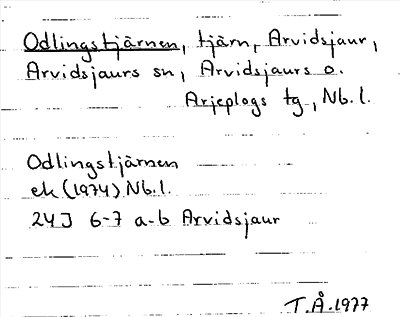 Odlingstjärnen, tjärn, Arvidsjaur,
Arvidsjaurs sn, Arvidsjaurs o.
Arjeplogs tg, Nb.l.
Odlingstjärnen
ek (1974) Nb.l.
24J 6-7 a-b Arvidsjaur
T.Å.1977